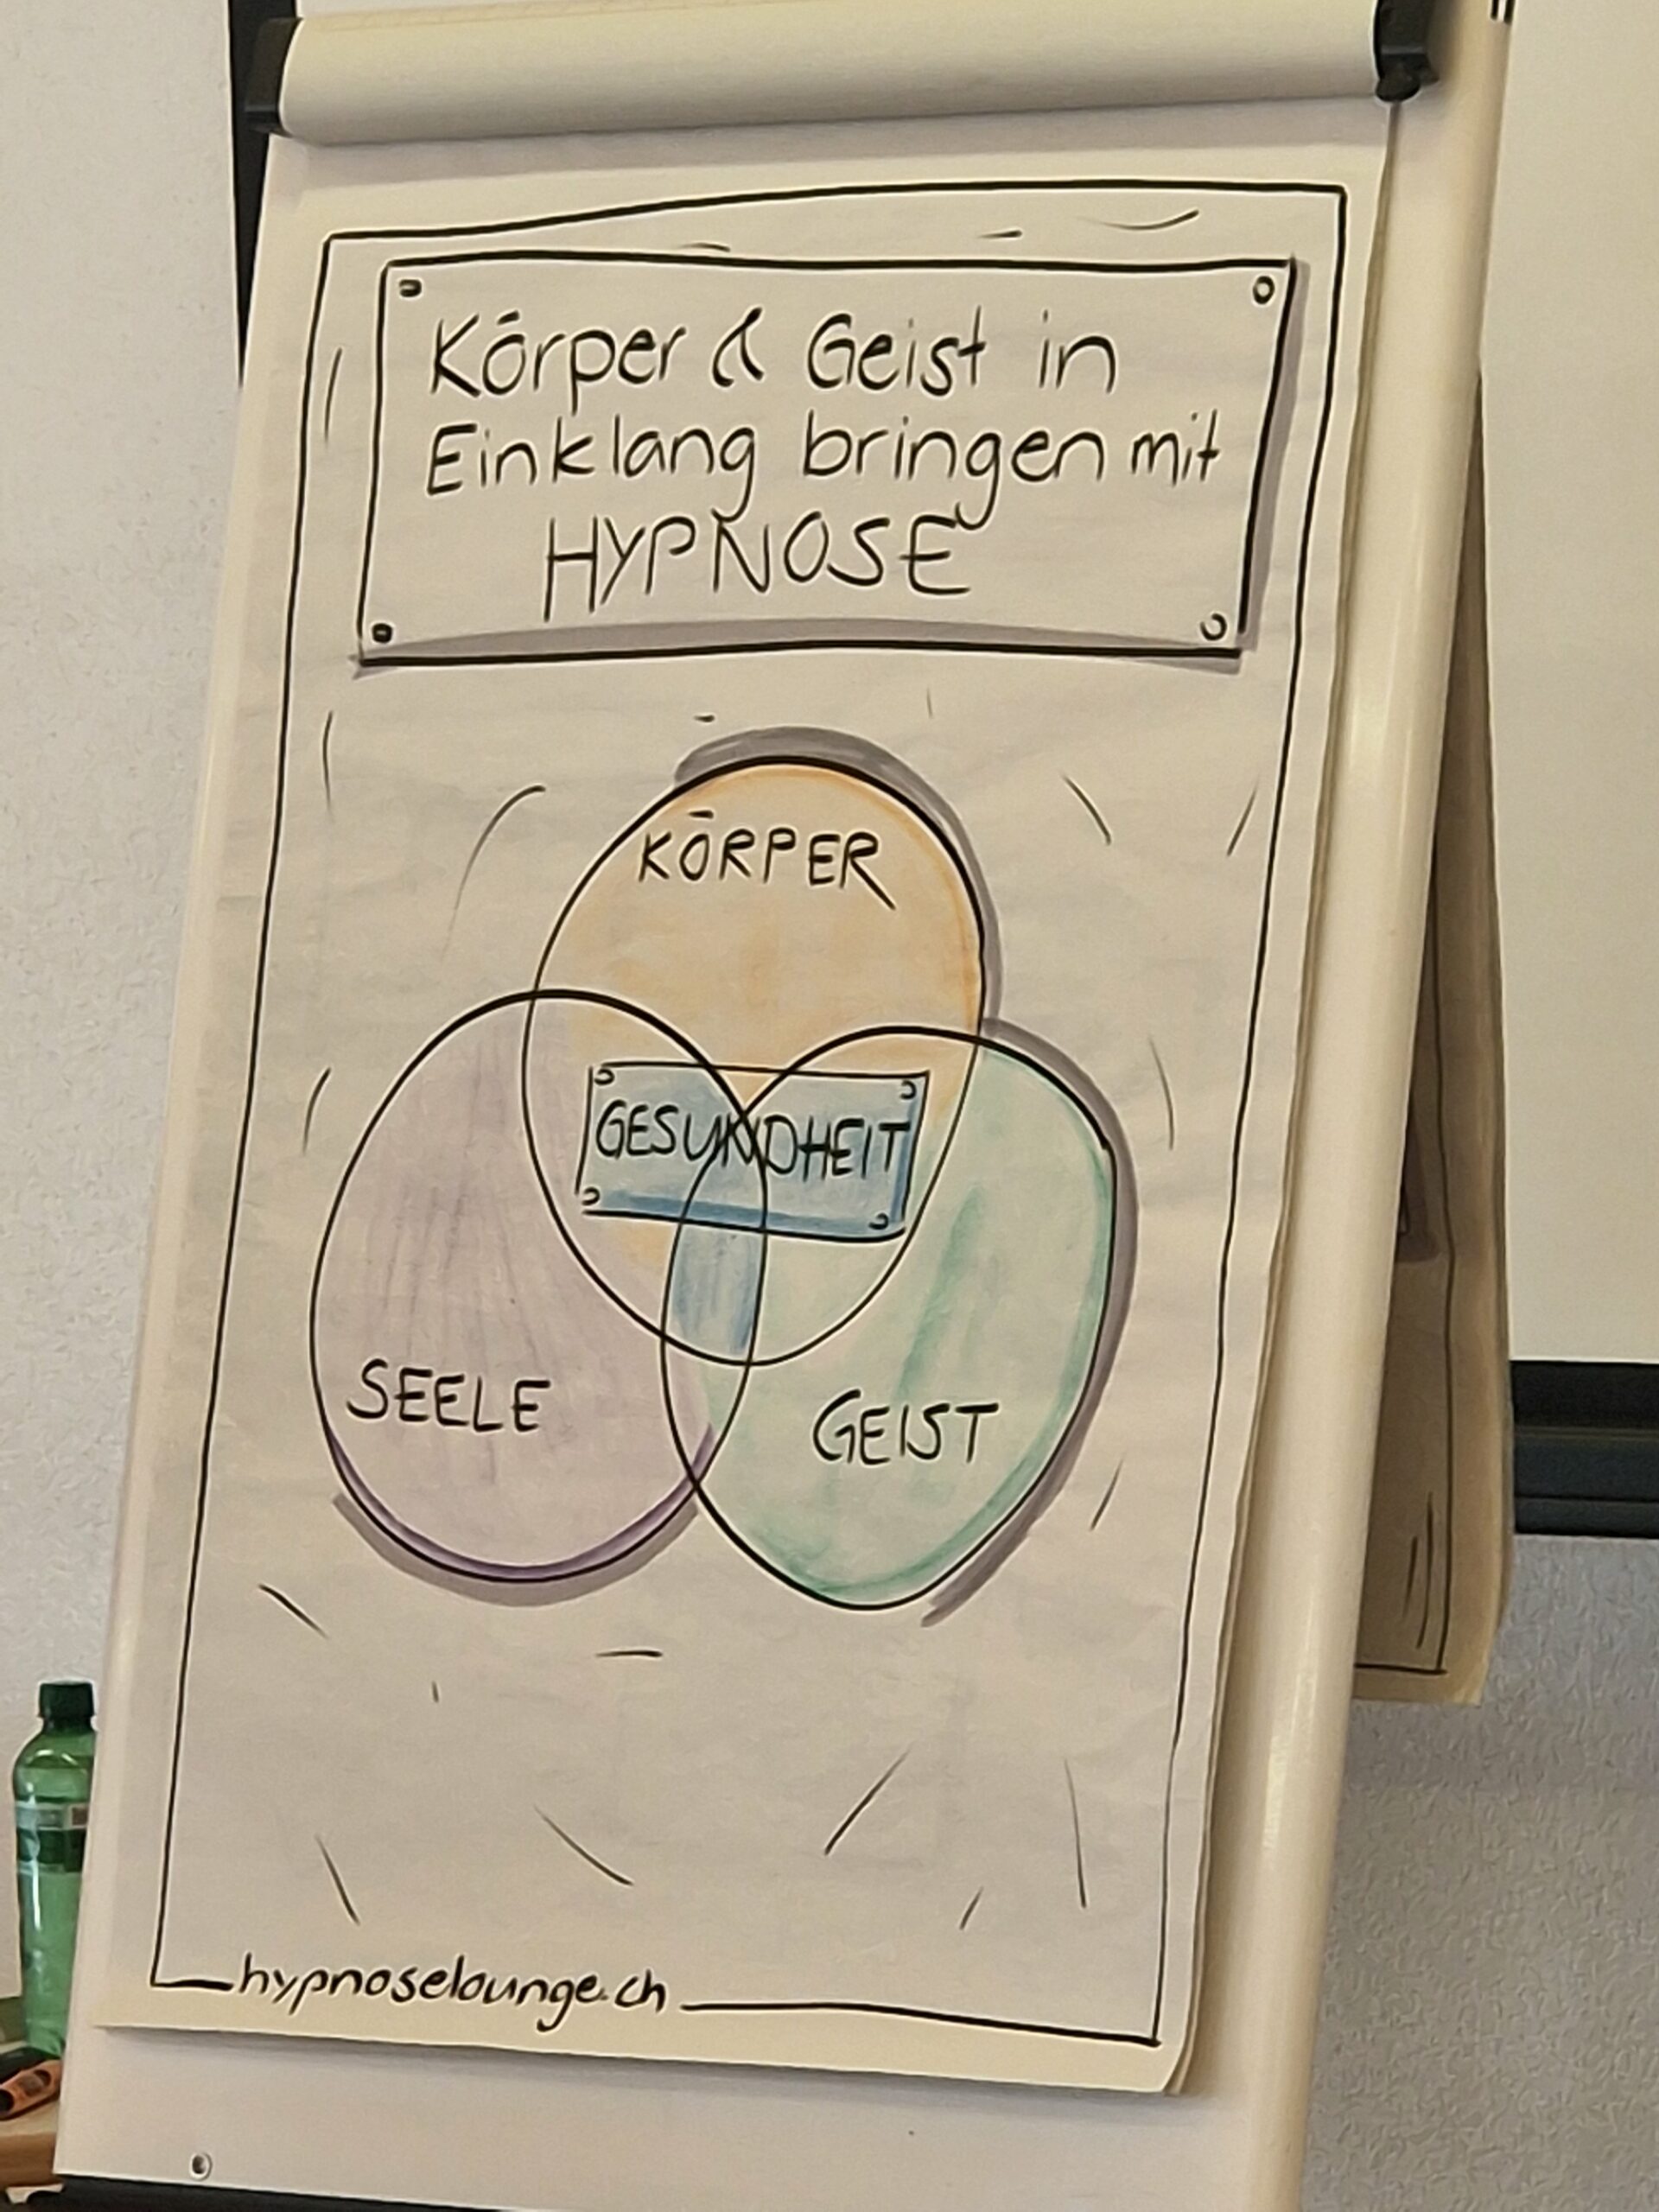 Körper & Geist in
Einklang bringen mit
HYPNOSE
KÖRPER
GESUNDHEIT
SEELE
GEIST
hypnoselounge.ch